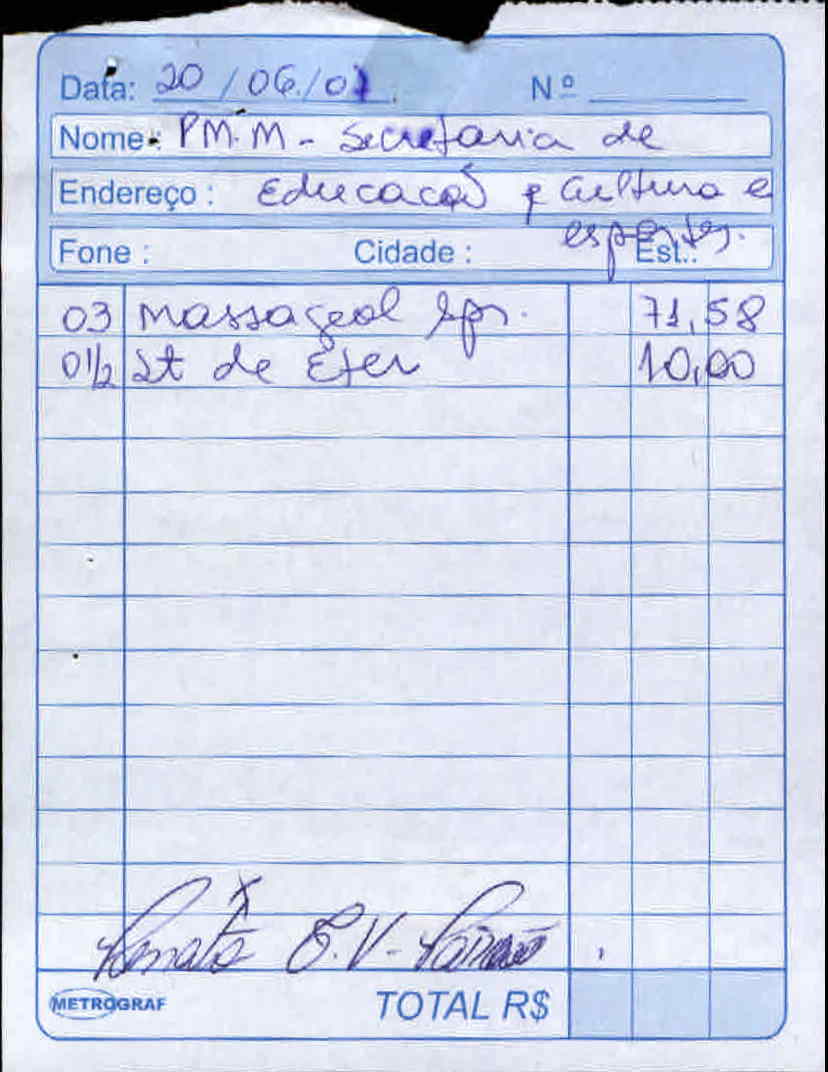 Data: 20/06/07 Nº
Nome: PM.M - Secretaria de
Endereço: Educação e Cultura e
esportes.
Fone: Cidade: Est.:
03 Massageol spr. 71,58
01/2 Lt de Eter 10,00
Renata V.
METROGRAF TOTAL R$